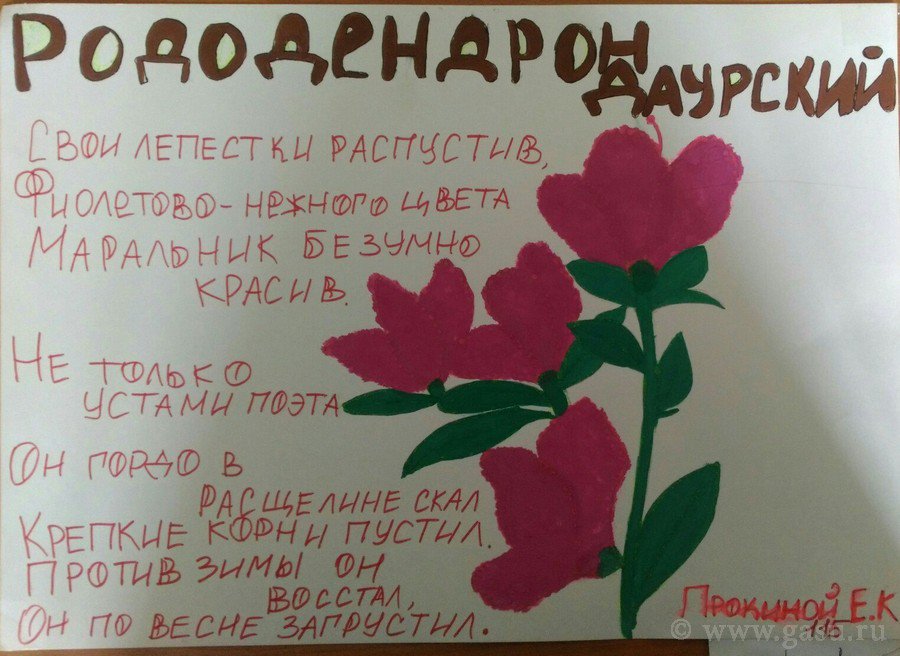 Рододендрон
Даурский
Свои лепестки распустив,
Фиолетово-нежного цвета
Маральник безумно
красив.
Не только
устами поэта
Он гордо в
расщелине скал
Крепкие корни пустил.
Против зимы он
восстал,
Он по весне запрустил.
Прокиной Е.К
115
© www.gasu.ru